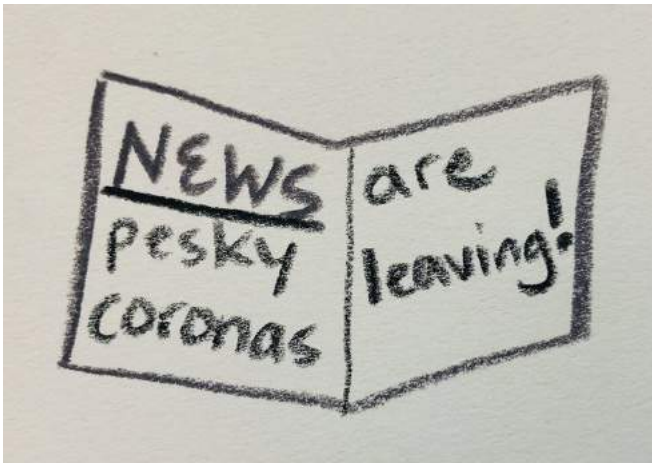 NEWS
pesky
coronas
are
leaving!